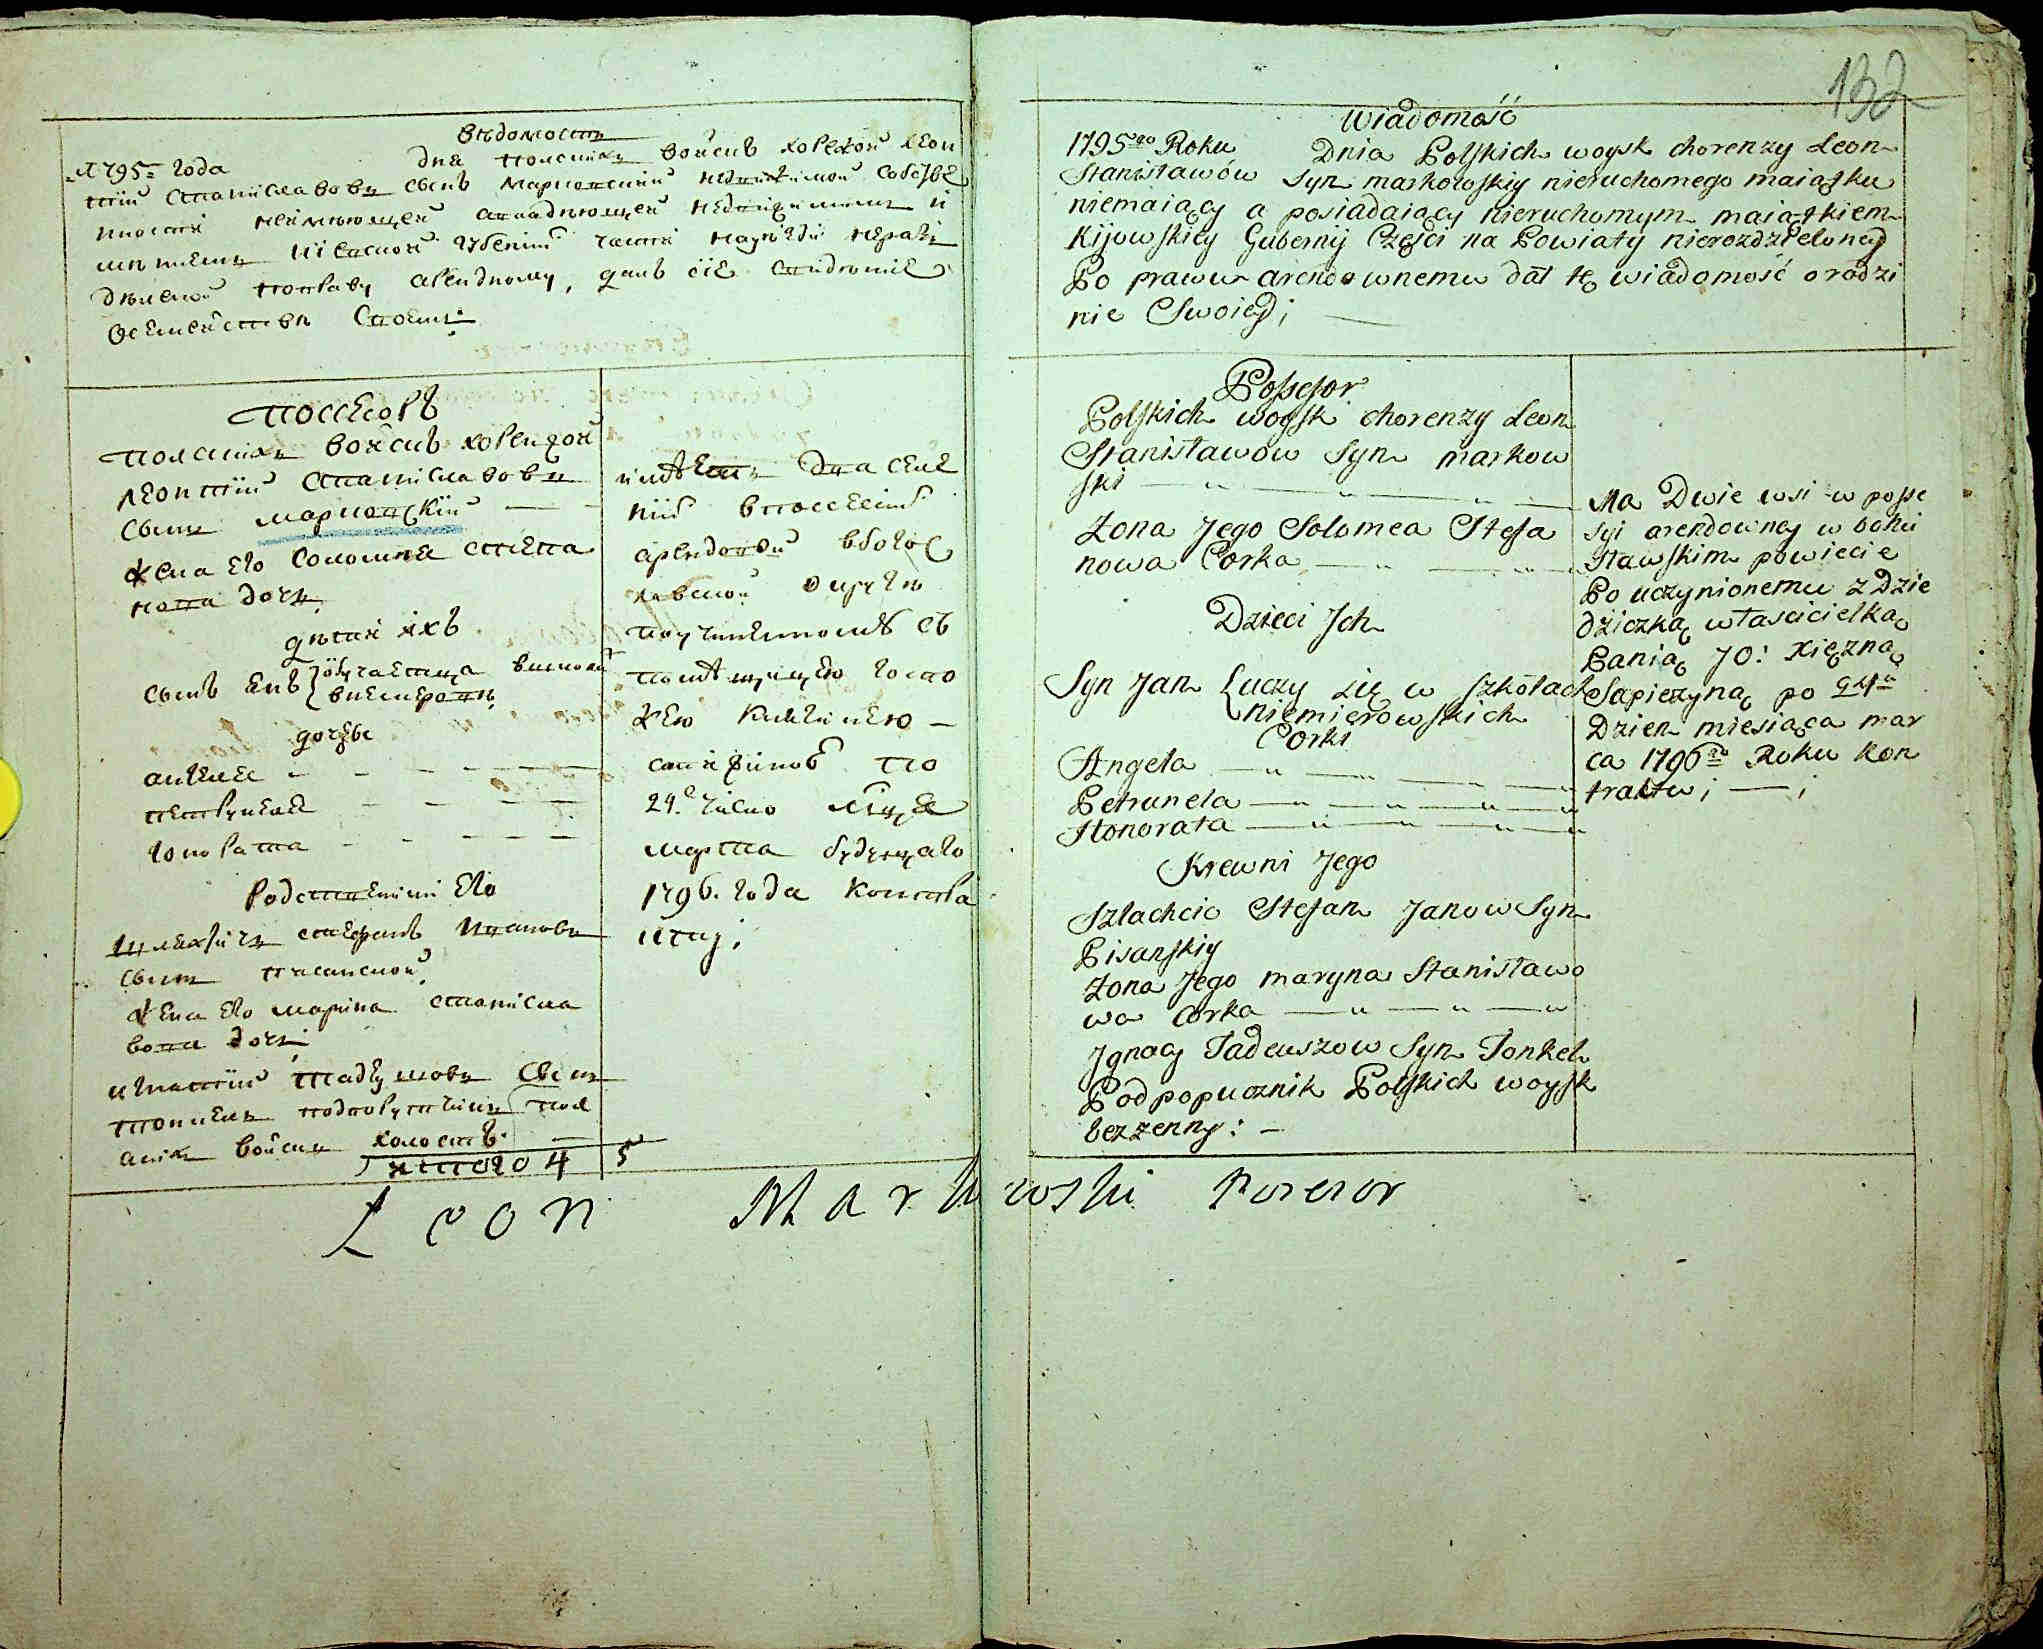 вѣдомость
1795 года дня польских войскъ хоренжой леон
тій Станиславовъ сынъ марковскій недвижимой собстве
нности неимѣющей авладѣющей недвижимымъ и
мѣниемъ кіевской губерніи части науѣзди нераз
дѣленой поправу арендному, далъ сіе
осемействѣ Своемъ
поссесоръ
польскихъ войскъ хоренжой
леонтій Станиславовъ
сынъ марковскій
жена его соломея степа
нова дочь
дѣти ихъ
сынъ янъ { обучается вшколѣ
внемировѣ
дочери
анжеле
петрунеле
гонората
родственики его
шляхтичъ стефанъ Ивановъ
сынъ писанской
жена его марина станисла
вова дочь
игнатій тадеушовъ сынъ
тонкель подпоручикъ пол
скихъ войскъ холостъ
итого 4 5
имѣетъ два селе
нія впоссесіи
арендовой вбогос
лавской округѣ
поучиненномъ съ
помѣщицею госпо
жею княгинею
сапѣгиной по
24е число мсца
марта будущаго
1796. года контра
кту;
132
Wiadomość
1795go Roku Dnia Polskich woysk chorenzy Leon
Stanisławów Syn markowskiy nieruchomego maiątku
niemaiący a posiadaiący nieruchomym maiątkiem
Kijowskiey Gubernij Części na Powiaty nierozdzieloney
Po prawu arendownemu dał tę wiadomość o rodzi
nie Swoiey;
Possesor
Polskich woysk chorenzy Leon
Stanisławow Syn markow
ski
Zona Jego Solomea Stefa
nowa Corka
Dzieci Jch
Syn Jan { uczy się w szkołach
niemierowskich
Corki
Angela
Petrunela
Honorata
Krewni Jego
Szlachcic Stefan Janow Syn
Pisanskiy
Zona Jego maryna Stanisławo
wa Corka
Jgnacy Tadeuszow Syn Tonkel
Podpopucznik Polskich woysk
bezzenny:
Ma Dwie wsi w posse
syi arendowney w bohu
sławskim powiecie
Po uczynionemu z Dzie
dziczką właścicielką
Panią JO: Xięzną
Sapieżyną po 24u
Dzien miesiąca mar
ca 1796go Roku kon
traktu;
Leon Markowski Possesor